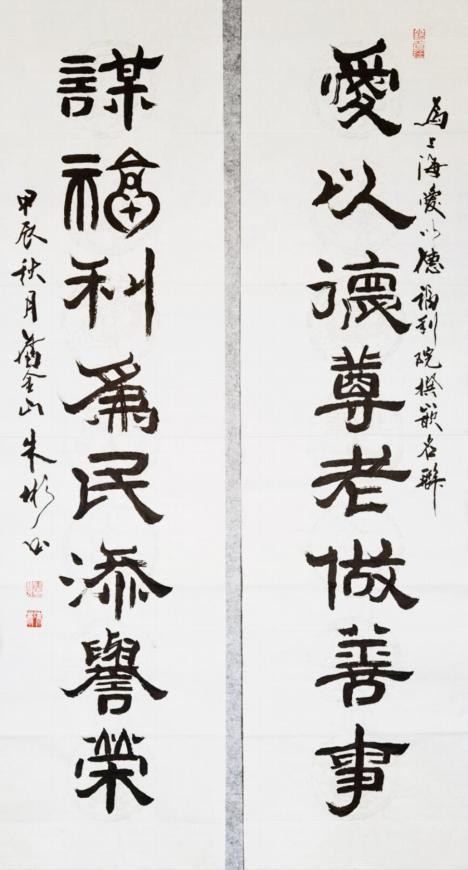 为上海愛以德福利院撰嵌名聯
愛以德尊老做善事
謀福利爲民添譽榮
甲辰秋月舊金山朱彬书